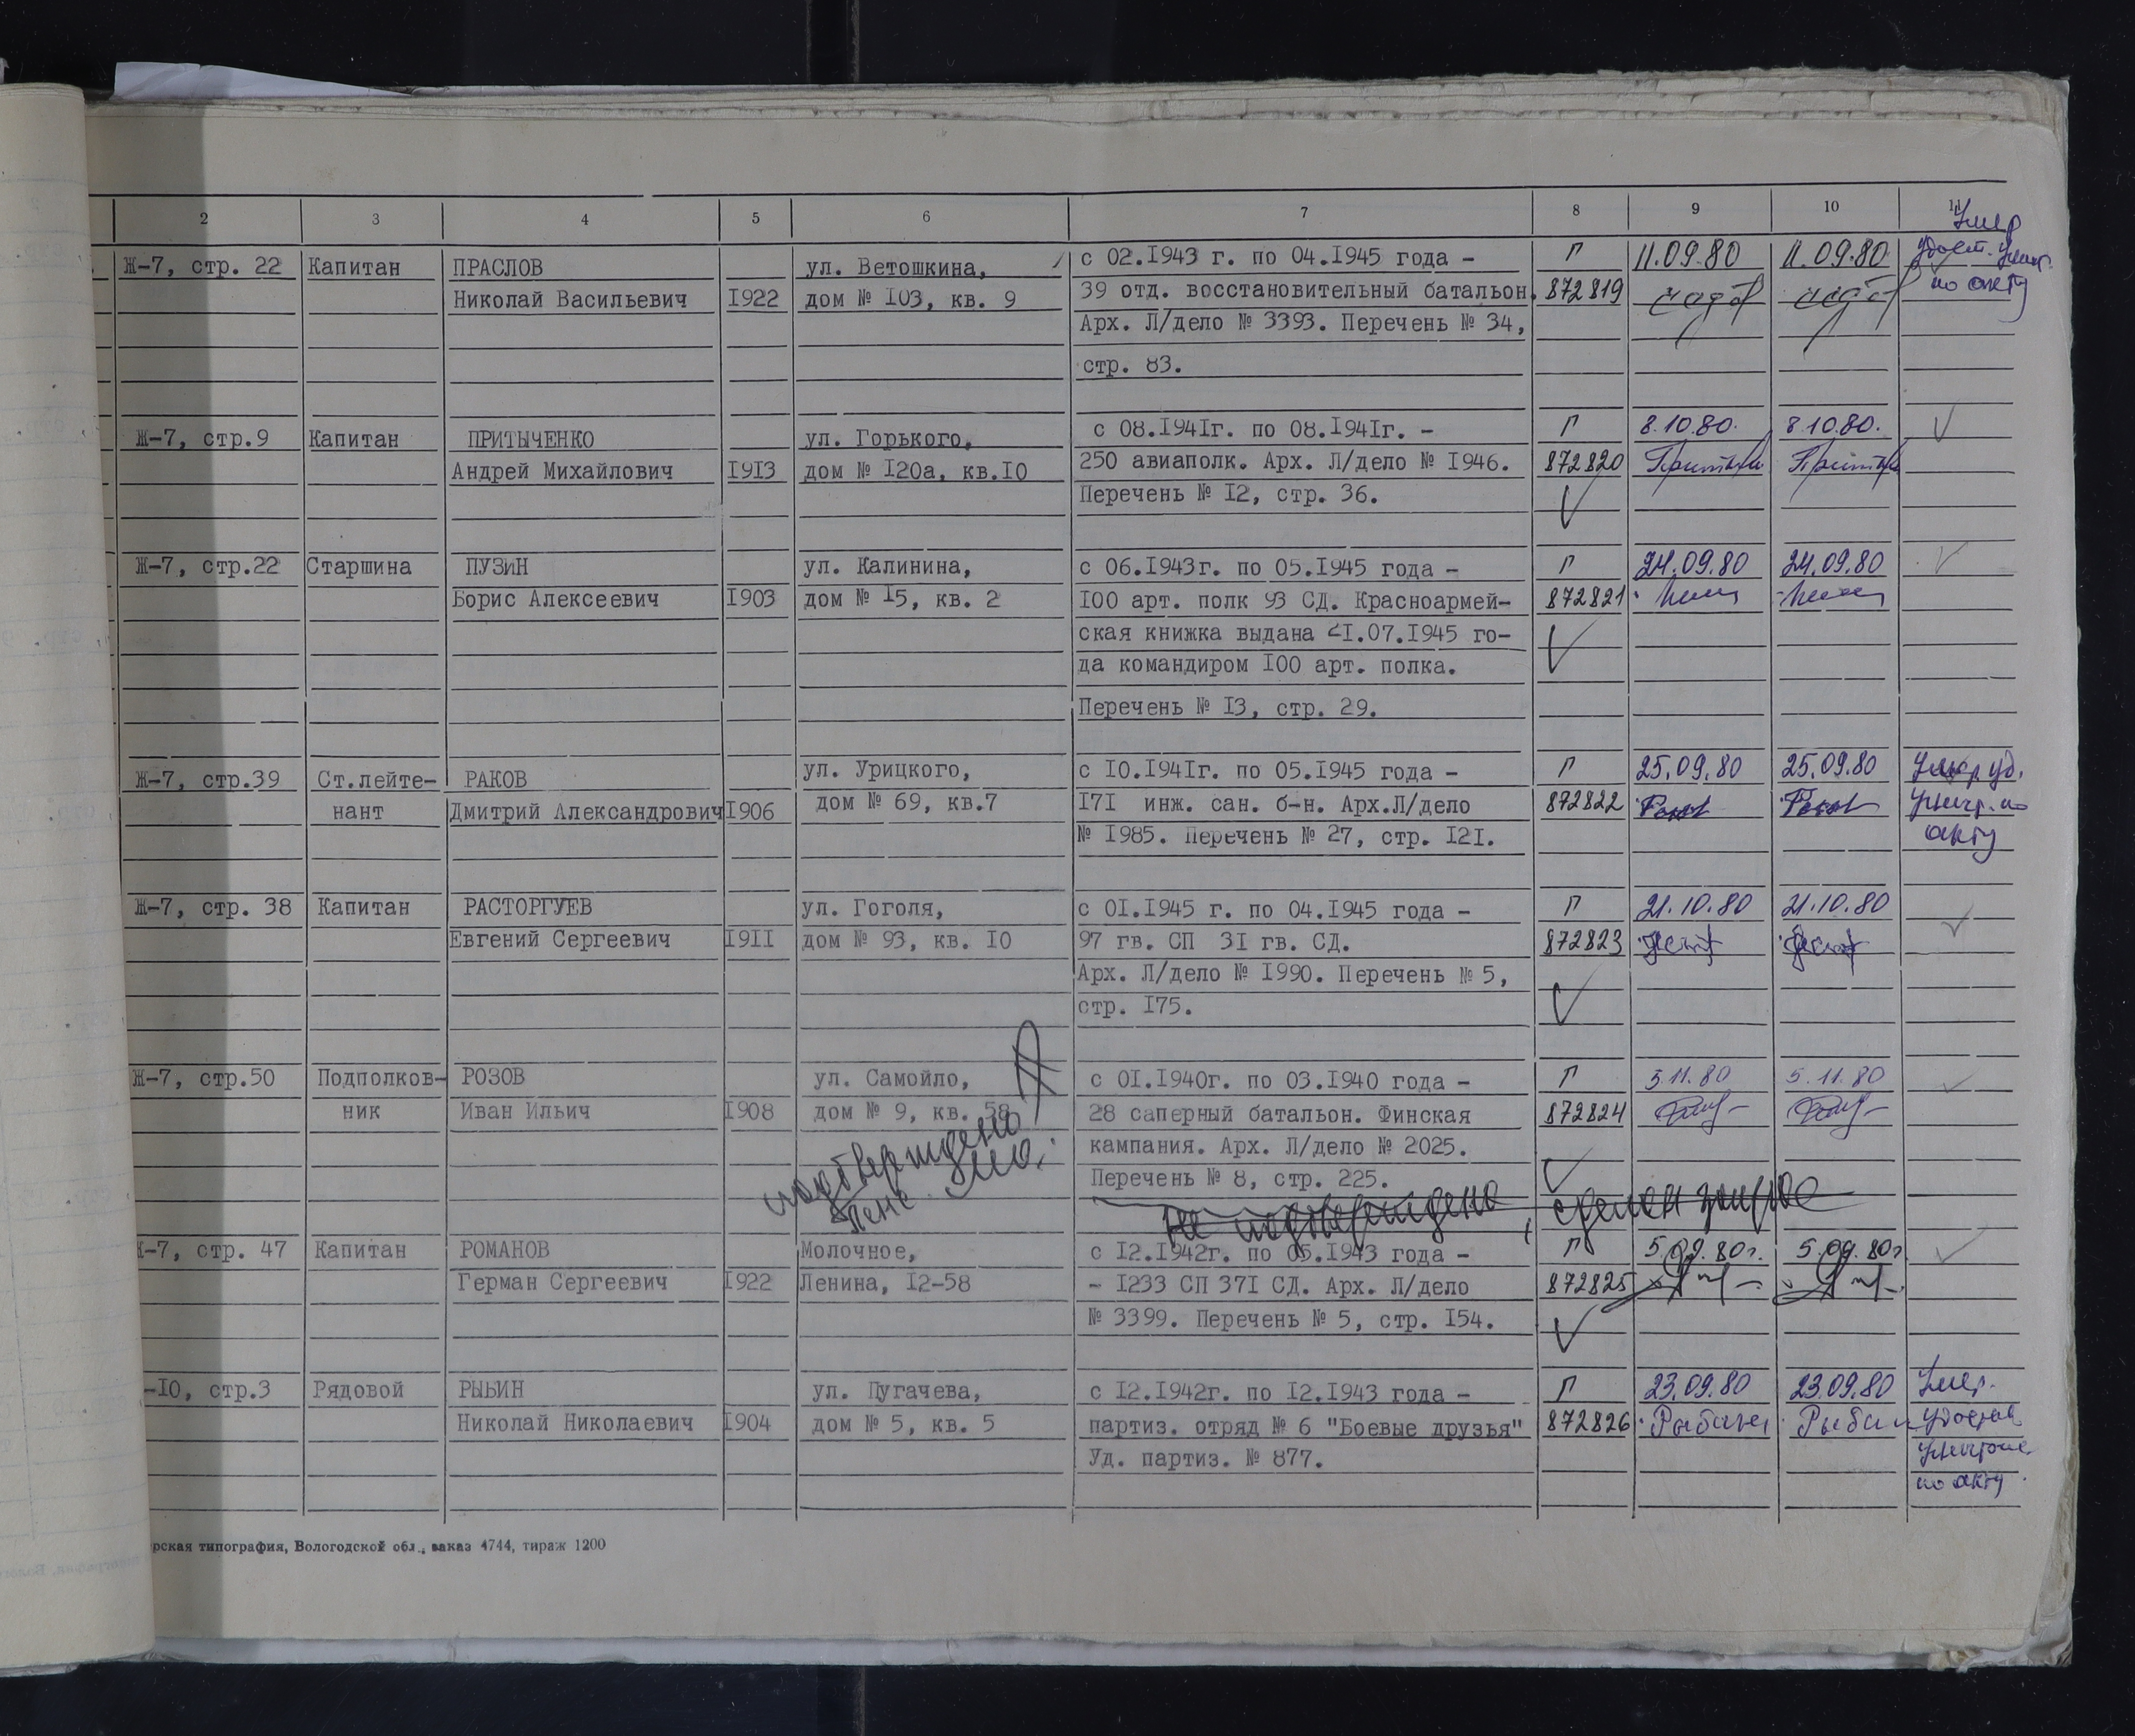 2 3 4 5 6 7 8 9 10 11
Умер
Ж-7, стр. 22 Капитан ПРАСЛОВ ул. Ветошкина, с 02.1943 г. по 04.1945 года - Г 11.09.80 11.09.80
Николай Васильевич 1922 дом № 103, кв. 9 39 отд. восстановительный батальон. 872819 по акту
Арх. Л/дело № 3393. Перечень № 34,
стр. 83.
Ж-7, стр.9 Капитан ПРИТЫЧЕНКО ул. Горького, с 08.1941г. по 08.1941г. - Г 8.10.80. 8.10.80.
Андрей Михайлович 1913 дом № 120а, кв.10 250 авиаполк. Арх. Л/дело № 1946. 872820
Перечень № 12, стр. 36.
Ж-7, стр.22 Старшина ПУЗИН ул. Калинина, с 06.1943г. по 05.1945 года - Г 24.09.80 24.09.80
Борис Алексеевич 1903 дом № 15, кв. 2 100 арт. полк 93 СД. Красноармей- 872821
ская книжка выдана 21.07.1945 го-
да командиром 100 арт. полка.
Перечень № 13, стр. 29.
Ж-7, стр.39 Ст.лейте- РАКОВ ул. Урицкого, с 10.1941г. по 05.1945 года - Г 25.09.80 25.09.80 Умер уд.
нант Дмитрий Александрович 1906 дом № 69, кв.7 171 инж. сан. б-н. Арх.Л/дело 872822 уничт. по
№ 1985. Перечень № 27, стр. 121. акту
Ж-7, стр. 38 Капитан РАСТОРГУЕВ ул. Гоголя, с 01.1945 г. по 04.1945 года - Г 21.10.80 21.10.80
Евгений Сергеевич 1911 дом № 93, кв. 10 97 гв. СП 31 гв. СД. 872823
Арх. Л/дело № 1990. Перечень № 5,
стр. 175.
Ж-7, стр.50 Подполков- РОЗОВ ул. Самойло, с 01.1940г. по 03.1940 года - Г 5.11.80 5.11.80
ник Иван Ильич 1908 дом № 9, кв. 58 28 саперный батальон. Финская 872824
кампания. Арх. Л/дело № 2025.
подтверждено
Перечень № 8, стр. 225.
не подтверждено, сделан запрос
Ж-7, стр. 47 Капитан РОМАНОВ Молочное, с 12.1942г. по 05.1943 года - Г 5.09.80г. 5.09.80г
Герман Сергеевич 1922 Ленина, 12-58 - 1233 СП 371 СД. Арх. Л/дело 872825
№ 3399. Перечень № 5, стр. 154.
-10, стр.3 Рядовой РЫБИН ул. Пугачева, с 12.1942г. по 12.1943 года - Г 23.09.80 23.09.80 Умер.
Николай Николаевич 1904 дом № 5, кв. 5 партиз. отряд № 6 "Боевые друзья" 872826
Уд. партиз. № 877.
по акту.
рская типография, Вологодской обл., заказ 4744, тираж 1200